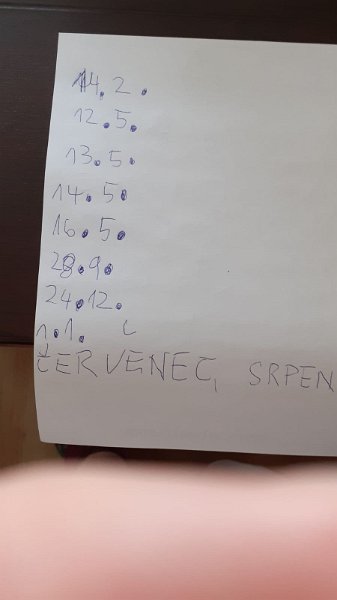 14.2.
12.5.
13.5.
14.5.
16.5.
28.9.
24.12.
1.1.
ČERVENEC, SRPEN